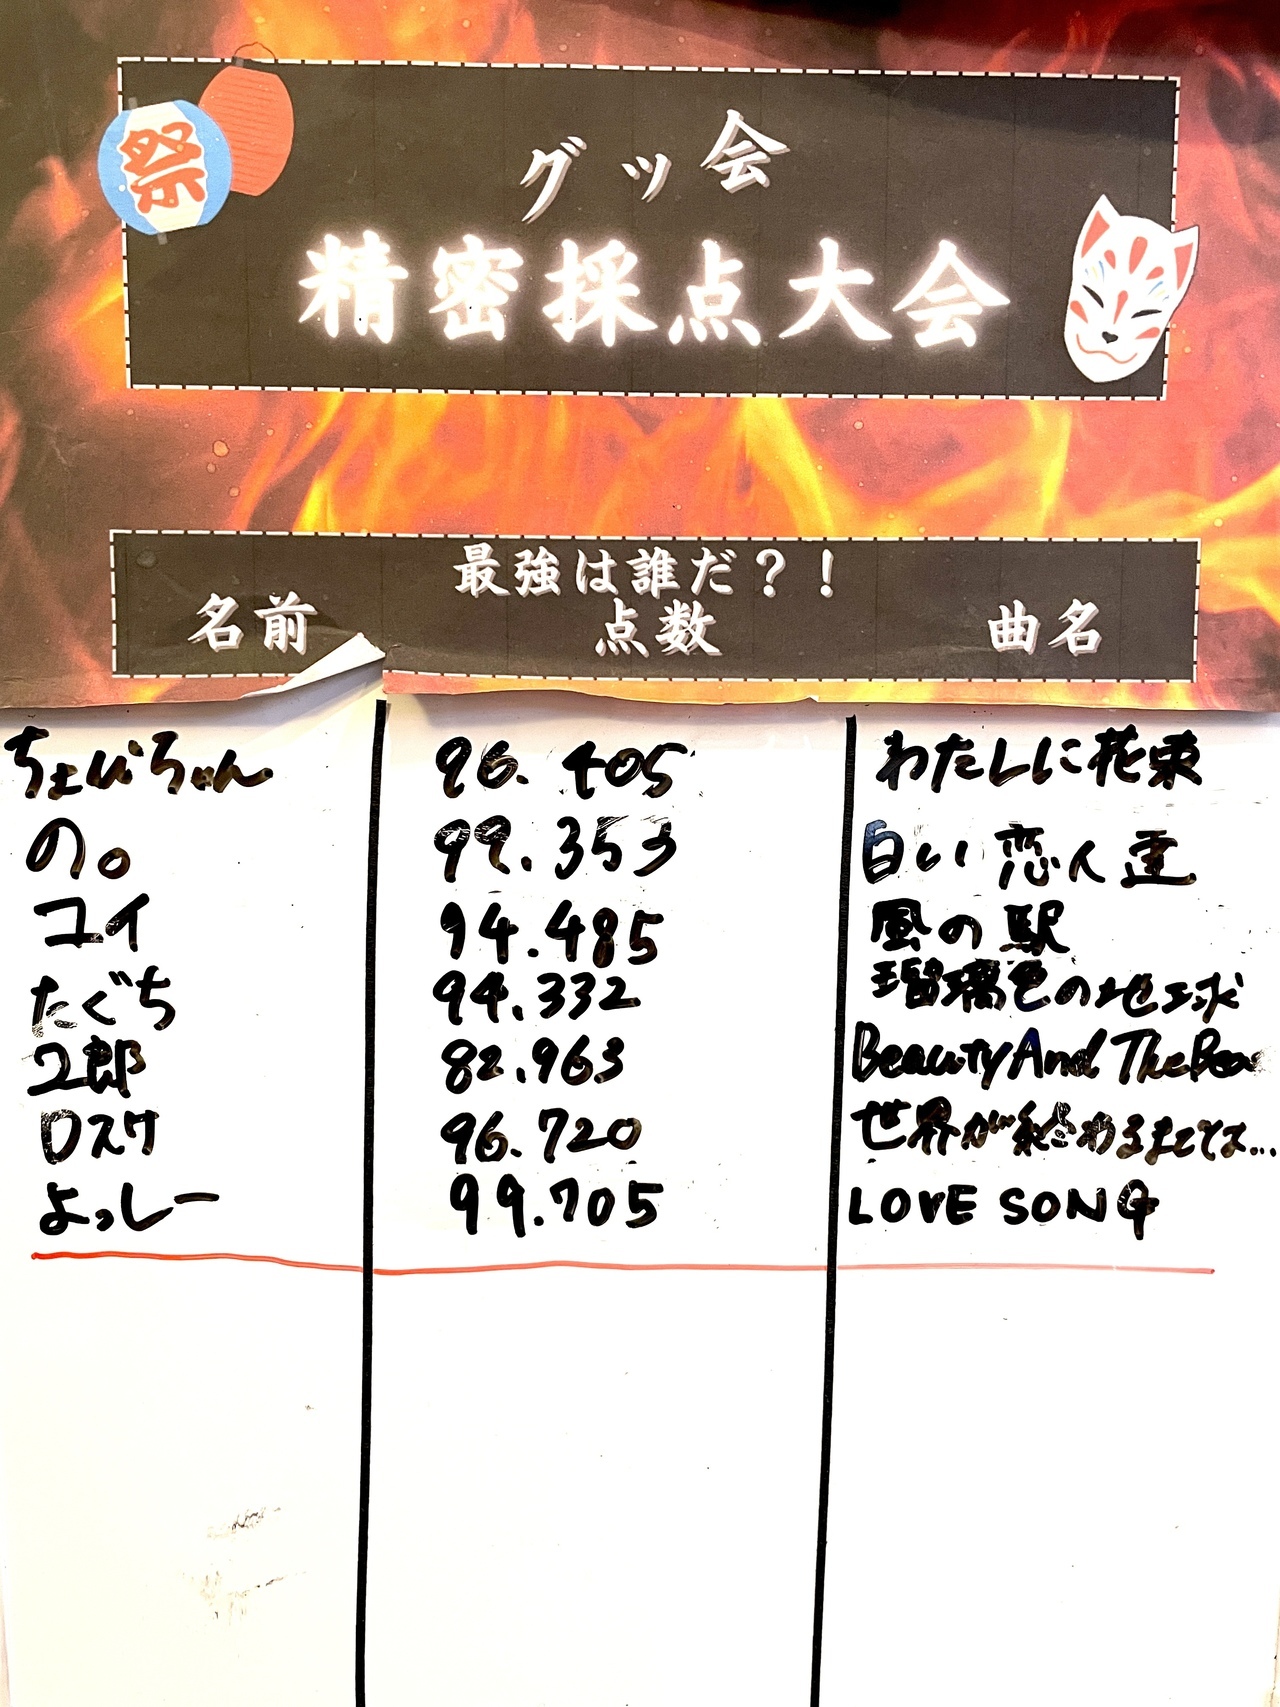 祭
グッ会
精密採点大会
最強は誰だ？！
名前 点数 曲名
ちょびちゃん 96.405 わたしに花束
の。 99.353 白い恋人達
ユイ 94.485 風の駅
たぐち 94.332 瑠璃色の地球
2郎 82.963 Beauty And The Bea
ロスケ 96.720 世界が終わるまでは...
よっしー 99.705 LOVE SONG